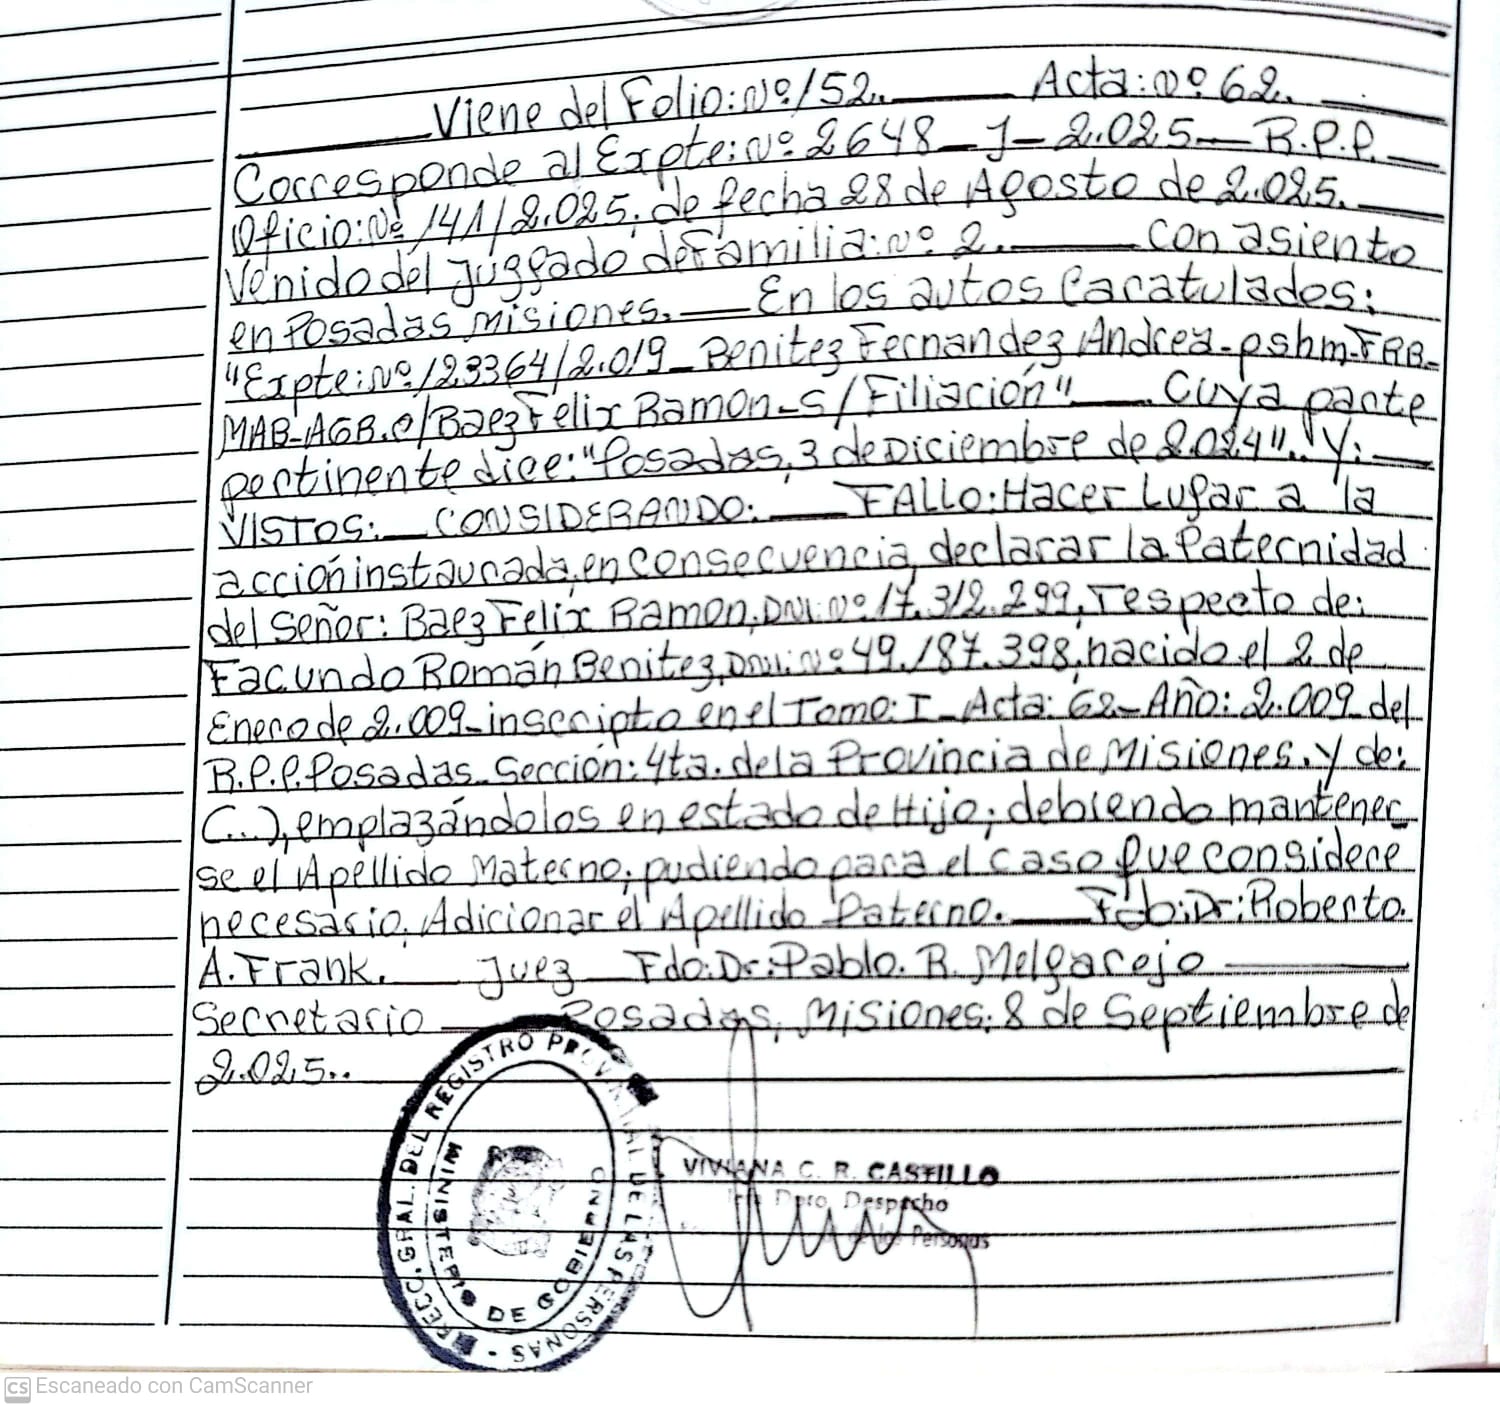 Viene del Folio: Nº 152. Acta: nº 62.
Corresponde al Expte: Nº 2648 - J - 2.025 - R.P.P.
Oficio: Nº 141/2.025, de fecha 28 de Agosto de 2.025.
Venido del Juzgado de Familia: nº 2. Con asiento
en Posadas Misiones. En los autos Caratulados:
"Expte: Nº 123364/2.019 - Benitez Fernandez Andrea - pshm - FRB -
MAB - AGB. c/ Baez Felix Ramon - S/Filiación" . Cuya parte
pertinente dice: "Posadas, 3 de Diciembre de 2.024". Y:
VISTOS: CONSIDERANDO: FALLO: Hacer Lugar a la
acción instaurada, en consecuencia, declarar la Paternidad
del Señor: Baez Felix Ramon, DNI: nº 17.312.299, respecto de:
Facundo Román Benitez, DNI: Nº 49.187.398, nacido el 2 de
Enero de 2.009 - inscripto en el Tomo: I - Acta: 62 - Año: 2.009 - del
R.P.P. Posadas. Sección: 4ta. de la Provincia de Misiones. y de:
(...), emplazándolos en estado de Hijo; debiendo mantener
se el Apellido Materno, pudiendo para el caso que considere
necesario, Adicionar el Apellido Paterno. Fdo: Dr: Roberto.
A. Frank. Juez Fdo: Dr: Pablo. R. Melgarejo
Secretario Posadas, Misiones; 8 de Septiembre de
2.025..
DIRECC. GRAL. DEL REGISTRO PROVINCIAL DE LAS PERSONAS
MINISTERIO DE GOBIERNO
VIVIANA C. R. CASTILLO
Dpto. Despacho
Personas
CS Escaneado con CamScanner